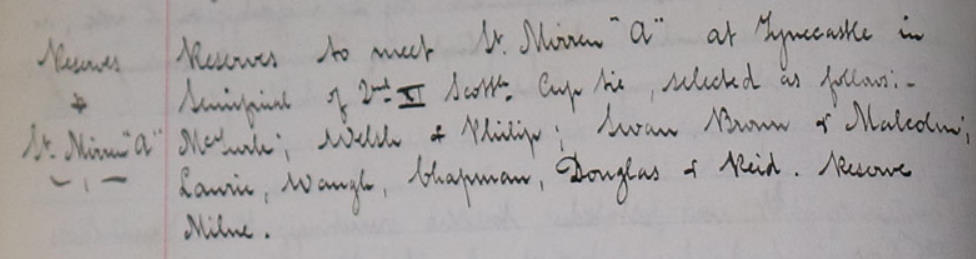 Reserves Reserves to meet St. Mirren "A" at Tynecastle in
& Semifinal of 2nd XI Scotth. Cup tie, selected as follows:-
St. Mirren "A" McGurk; Welsh & Philip; Swan Brown & Malcolm;
Lawrie, Waugh, Chapman, Douglas & Reid. Reserve
Milne.